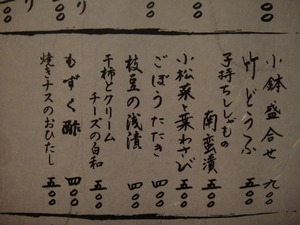 小鉢盛合せ 九〇〇
竹どうふ 五〇〇
子持ちししゃもの
南蛮漬 五〇〇
小松菜と葉わさび 五〇〇
ごぼうたたき 四〇〇
枝豆の浅漬 四〇〇
干柿とクリーム
チーズの白和 五〇〇
もずく酢 四〇〇
焼きナスのおひたし 五〇〇